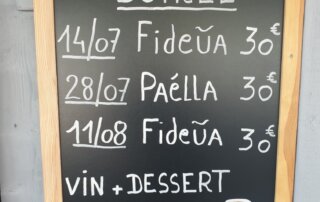 14/07 Fideŭa 30€
28/07 PAéllA 30€
11/08 Fideŭa 30€
VIN + DESSERT